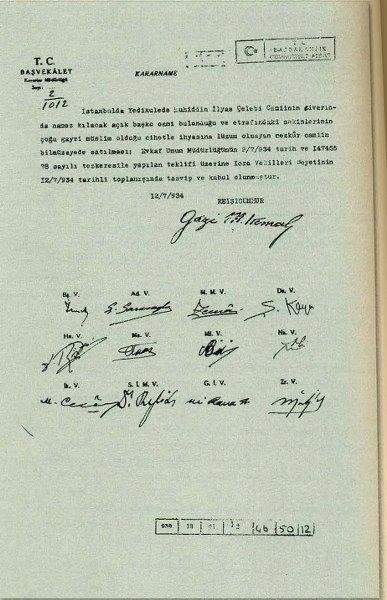 T. C.
BAŞVEKÂLET
Kararlar Müdürlüğü
Sayı
2
1012
KARARNAME
T. C.
BAŞBAKANLIK
CUMHURİYET ARŞİVİ
İstanbulda Yedikulede Muhiddin İlyas Çelebi Camiinin civarın-
da namaz kılacak açık başka cami bulunduğu ve etrafındaki sakinlerinin
çoğu gayri müslim olduğu cihetle ihyasına lüzum olmıyan mezkûr camiin
bilmüzayede satılması; Evkaf Umum Müdürlüğünün 9/7/934 tarih ve 147455
78 sayılı tezkeresile yapılan teklifi üzerine İcra Vekilleri Heyetinin
12/7/934 tarihli toplanışında tasvip ve kabul olunmuştur.
12/7/934
REİSİCUMHUR
Gazi M. Kemal
Bş. V. Ad. V. M. M. V. Da. V.
Ş. Kaya
Ha. V. Ma. V. Mf. V. Na. V.
İk. V. S. İ. M. V. G. İ. V. Zr. V.
030 18 01 46 50 12